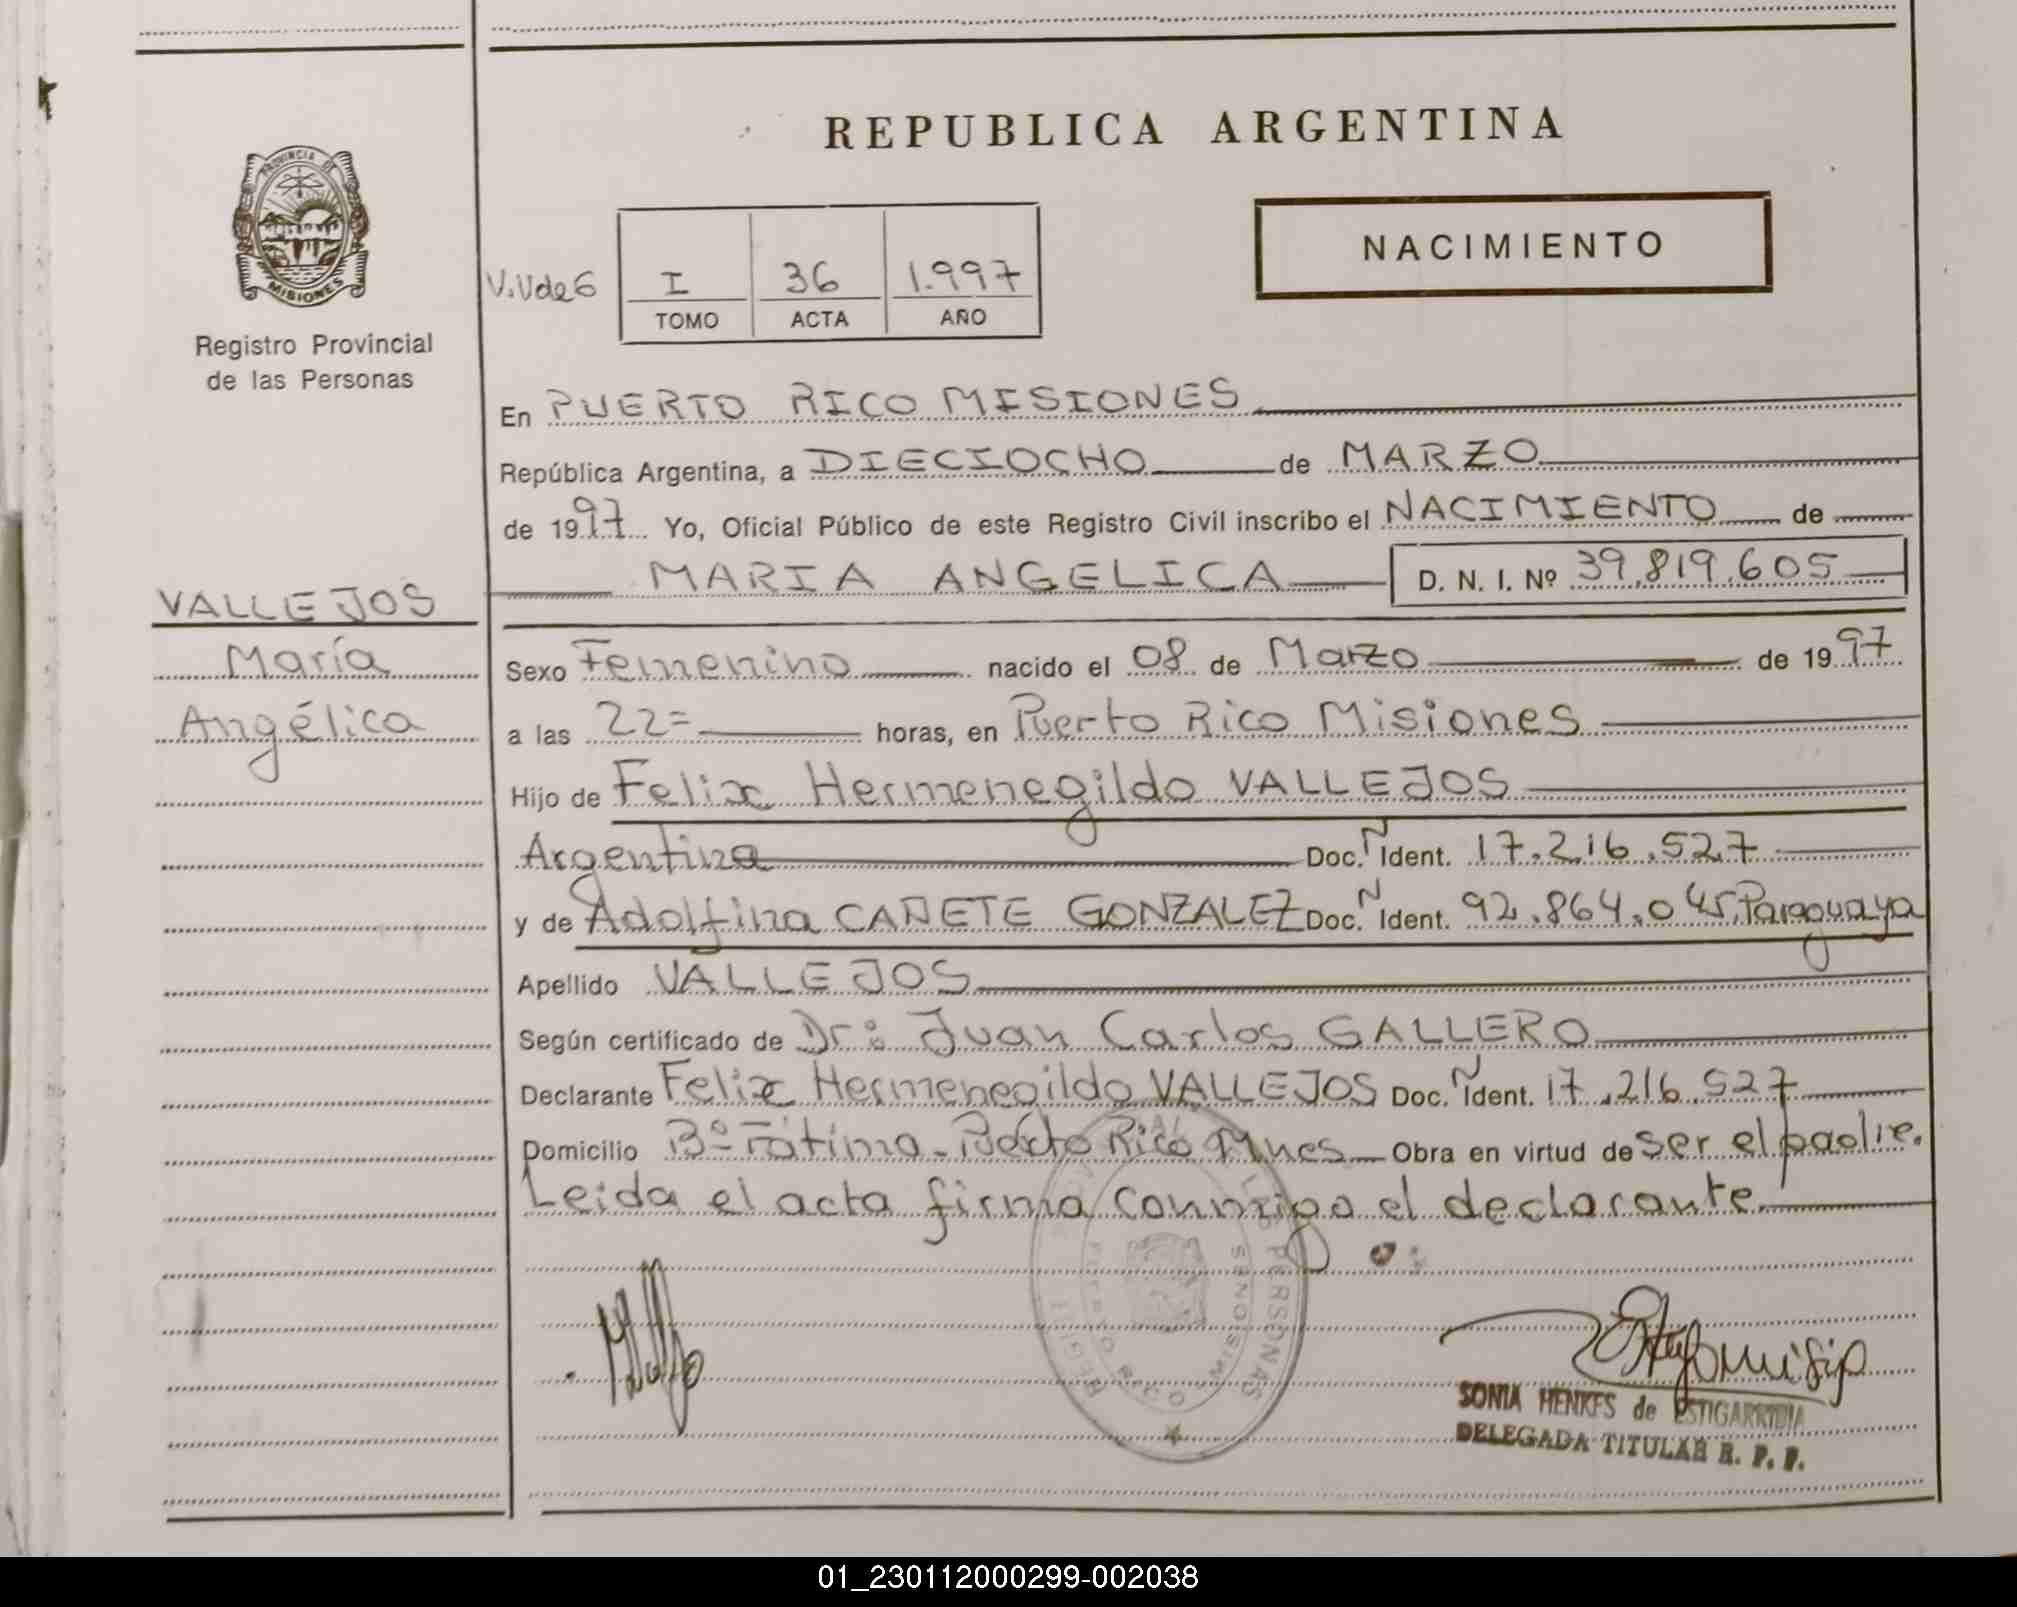 REPUBLICA ARGENTINA
PROVINCIA DE
MISIONES
Registro Provincial
de las Personas
NACIMIENTO
V.Vde6
I 36 1.997
TOMO ACTA AÑO
En PUERTO RICO MISIONES
República Argentina, a DIECIOCHO de MARZO
de 1997 Yo, Oficial Público de este Registro Civil inscribo el NACIMIENTO de
MARIA ANGELICA D. N. I. Nº 39.819.605
VALLEJOS
María
Angélica
Sexo Femenino nacido el 08 de Marzo de 1997
a las 22= horas, en Puerto Rico Misiones
Hijo de Felix Hermenegildo VALLEJOS
Argentina Doc. N Ident. 17.216.527
y de Adolfina CAÑETE GONZALEZ Doc. N Ident. 92.864.045, Paraguaya
Apellido VALLEJOS
Según certificado de Dr: Juan Carlos GALLERO
Declarante Felix Hermenegildo VALLEJOS Doc. N Ident. 17.216.527
Domicilio Bº Fátima - Puerto Rico Mnes Obra en virtud de ser el padre.
Leida el acta firma conmigo el declarante.
PERSONAS
PUERTO RICO MISIONES
SONIA HENKES de ESTIGARRIBIA
DELEGADA TITULAR R. P. P.
01_230112000299-002038